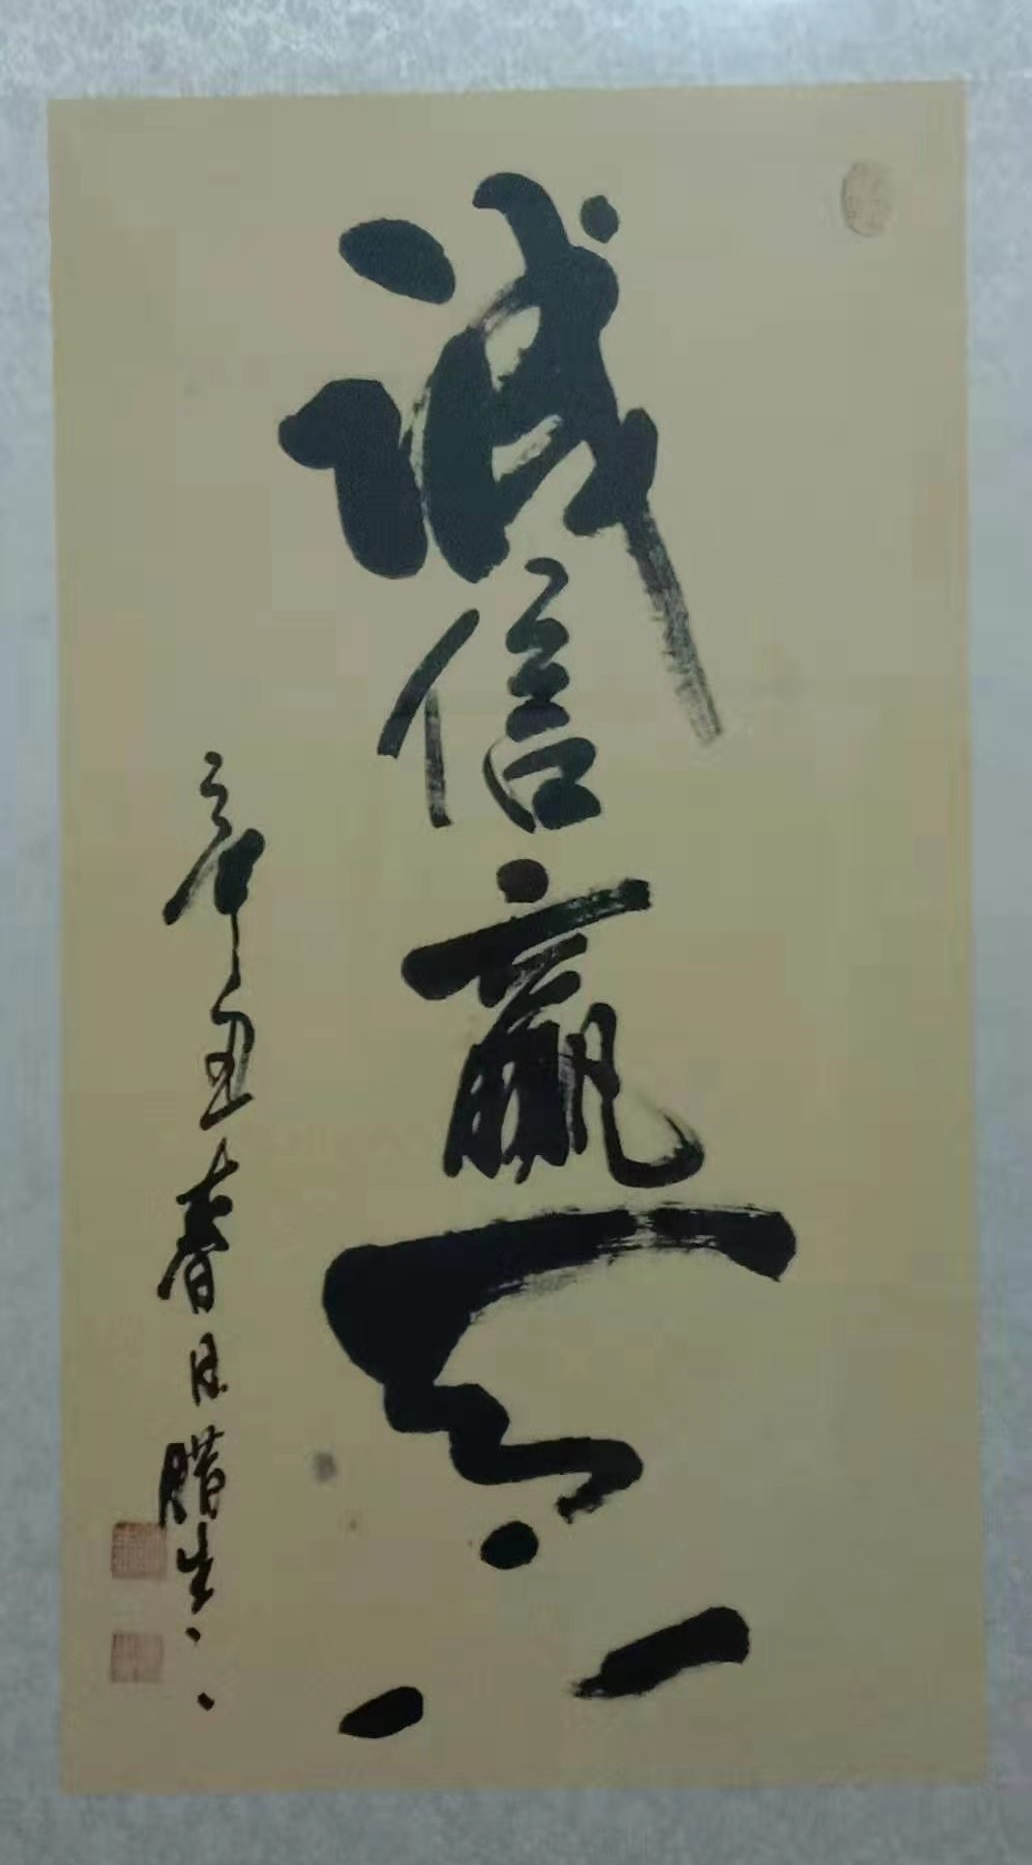 诚信赢天下
辛丑春月腊生